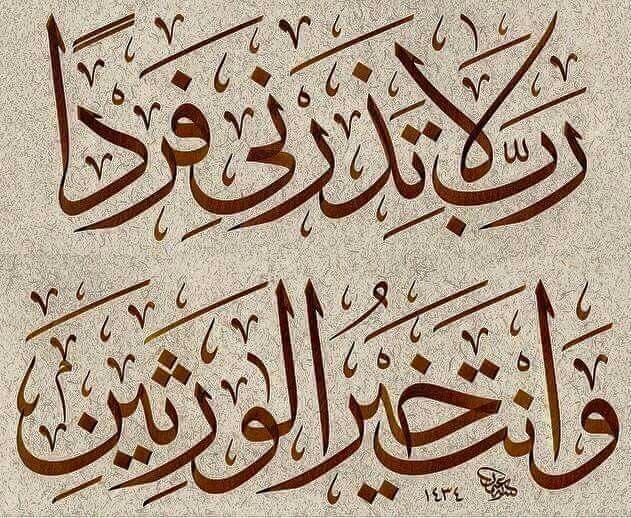 رَبِّ لَا تَذَرْنِي فَرْدًا
وَأَنتَ خَيْرُ الْوٰرِثِينَ
١٤٣٤